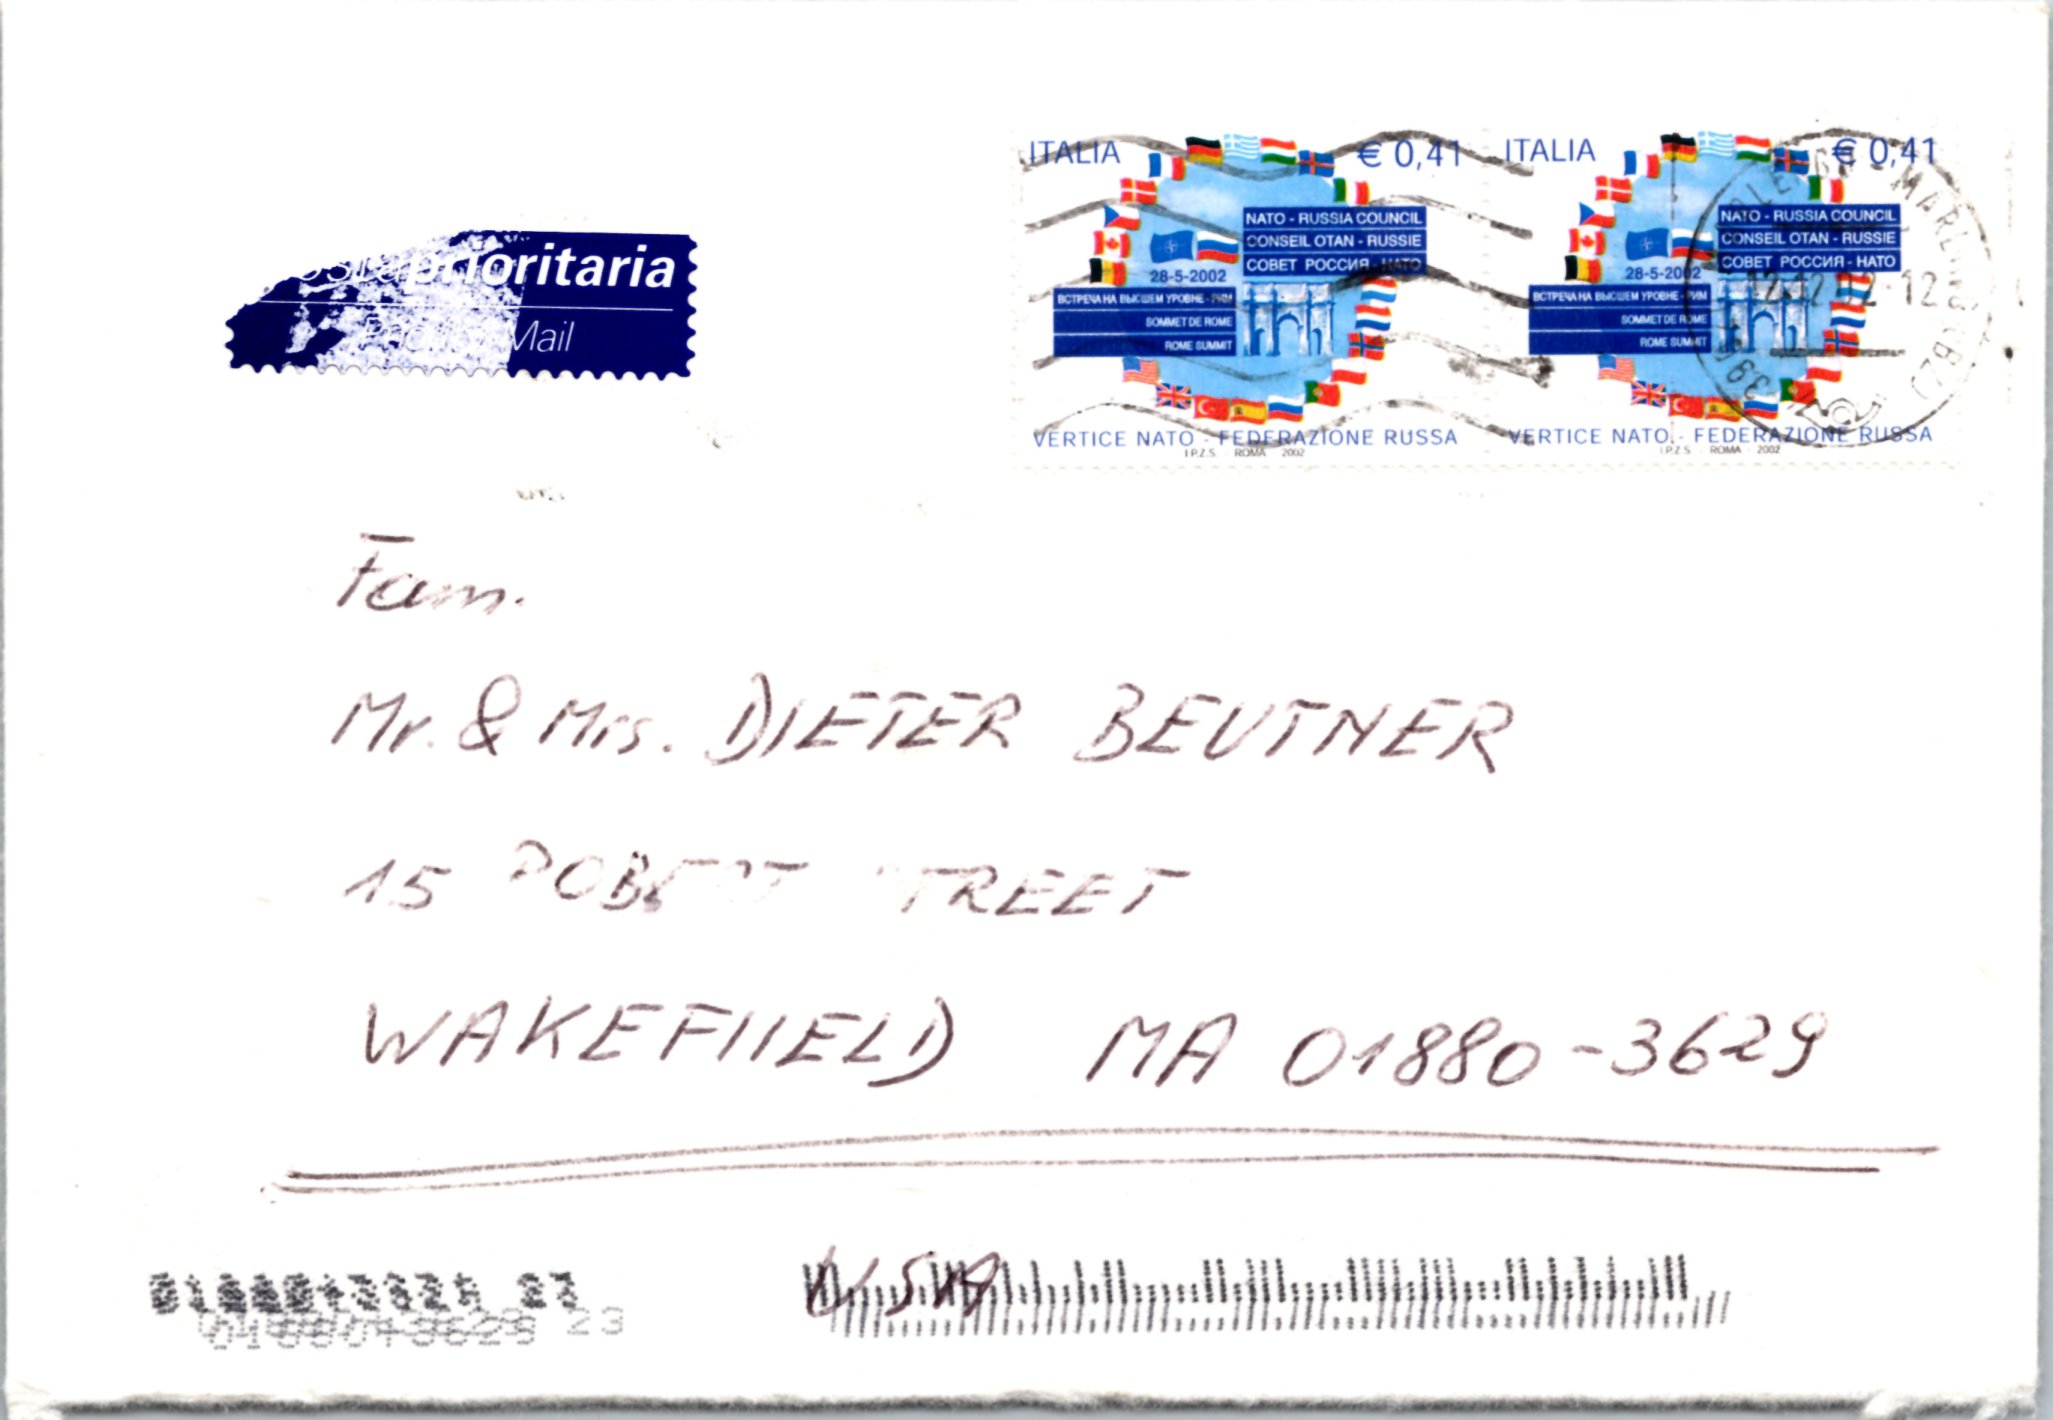 ITALIA € 0,41
NATO - RUSSIA COUNCIL
CONSEIL OTAN - RUSSIE
СОВЕТ РОССИЯ - НАТО
28-5-2002
ВСТРЕЧА НА ВЫСШЕМ УРОВНЕ - РИМ
SOMMET DE ROME
ROME SUMMIT
VERTICE NATO - FEDERAZIONE RUSSA
I.P.Z.S. - ROMA - 2002
ITALIA € 0,41
NATO - RUSSIA COUNCIL
CONSEIL OTAN - RUSSIE
СОВЕТ РОССИЯ - НАТО
28-5-2002
ВСТРЕЧА НА ВЫСШЕМ УРОВНЕ - РИМ
SOMMET DE ROME
ROME SUMMIT
VERTICE NATO - FEDERAZIONE RUSSA
I.P.Z.S. - ROMA - 2002
12.12.02-12
prioritaria
Mail
Fam.
Mr. & Mrs. DIETER BEUTNER
15 ROBERT STREET
WAKEFIIELD MA 01880-3629
USA
01880+3629 23